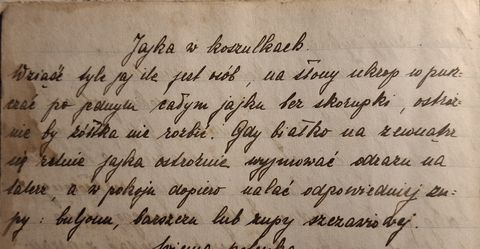 Jajka w koszulkach.
Wziąść tyle jaj ile jest osób, na słony ukrop wpusz-
czać po jednym całym jajku bez skorupki, ostroż-
nie by żółtka nie rozbić. Gdy białko na zewnątrz
się zetnie jajka ostrożnie wyjmować odrazu na
talerz, a w pokoju dopiero nalać odpowiedniej zu-
py: buljonu, barszczu lub zupy szczawiowej.